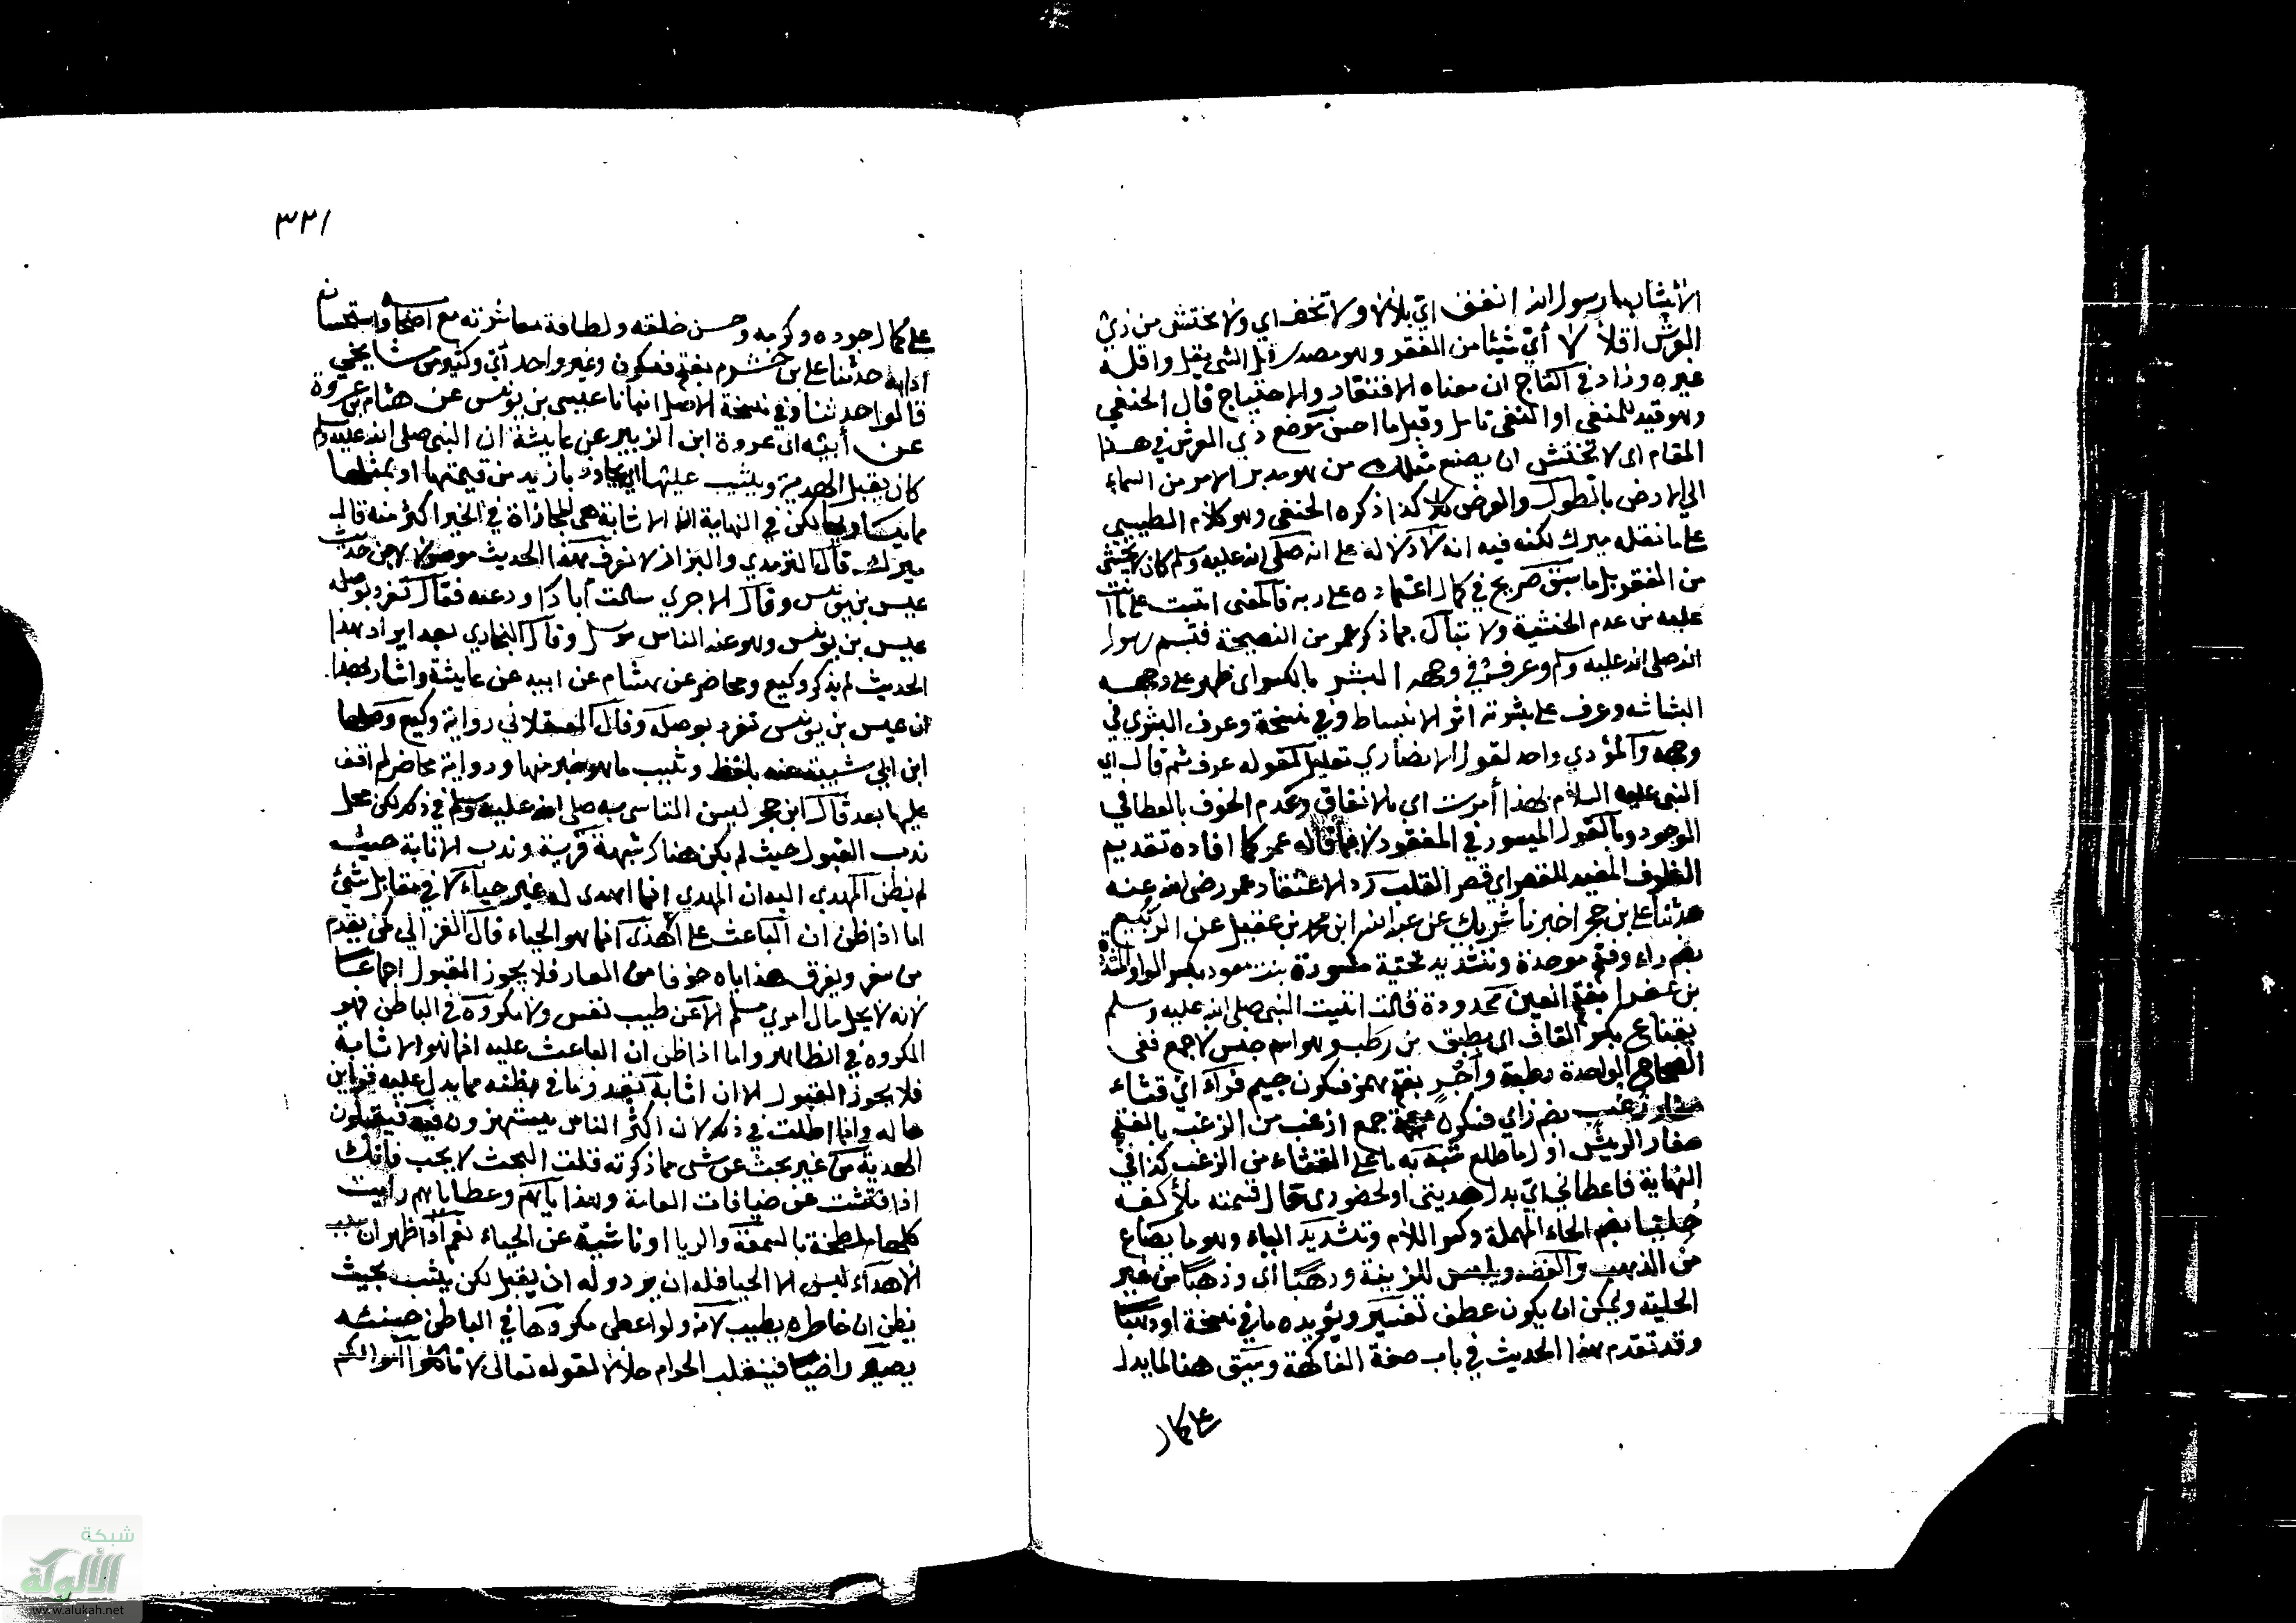 الأنصار يا رسول الله انفق اي بلالا ولا تخف اي ولا تخش من ذي
العرش اقلالا أي شيئا من الفقر وهو مصدر قل الشئ يقل واقله
غيره وزاد في التاج ان معناه الافتقار والاحتياج قال الحنفي
وهو قيد للمنفي او النفي تامل وقيل ما احسن موضع ذي العرش في هذا
المقام اي لا تخش ان يضيع مثلك من هو مدبر الامر من السماء
الي الارض بالطول والعرض كذا ذكره الحنفي وهو كلام الطيبي
على ما نقله ميرك لكنه فيه انه لا دلالة على انه صلى الله عليه وسلم كان لا يخشى
من الفقر بل ما سبق صريح في كمال اعتماده على ربه فالمعنى اثبت على ما انت
عليه من عدم الخشية ولا تبال بما ذكر عمر من النصيحة فتبسم رسول
الله صلى الله عليه وسلم وعرف في وجهه البشر بالكسر اي ظهر على وجهه
البشاشه وعرف على بشرته اثر الانبساط وفي نسخة وعرف البشر في
وجهه والمؤدي واحد لقول الانصاري تعليل لقوله عرف ثم قال اي
النبي عليه السلام بهذا أمرت اي بالانفاق وعدم الخوف بالعطا في
الموجود وبالقول الميسور في المفقود لا بما قاله عمر كما افاده تقديم
الظرف المفيد للقصر اي قصر القلب رد الاعتقاد عمر رضي الله عنه
حدثنا علي بن حجر اخبرنا شريك عن عبد الله ابن محمد بن عقيل عن الربيع
بضم راء وفتح موحدة وتشديد تحتية مكسورة بنت معوذ بكسر الواو المشددة
بن عفرا بفتح العين ممدودة قالت اتيت النبي صلى الله عليه وسلم
بقناع بكسر القاف اي بطبق من رطب وهو اسم جنس لا جمع ففي
الصحاح الواحدة رطبة وأجر بفتح همز فسكون جيم فراء اي قثاء
صغار زغب بضم زاي فسكون معجمة جمع ازغب من الزغب بالفتح
صغار الريش اول ما طلع شبه به ما على القثاء من الزغب كذا في
النهاية فاعطاني اي بدل هديتي او لحضوري حال قسمته ملأ كفه
حليا بضم الحاء المهملة وكسر اللام وتشديد الياء وهو ما يصاغ
من الذهب والفضه ويلبس للزينة وذهبا اي وذهبا من غير
الحلية ويمكن ان يكون عطف تفسير ويؤيده ما في نسخة او ذهبا
وقد تقدم هذا الحديث في باب صفة الفاكهة وسبق هنا لما يدل
على كمال
٣٢١
على كمال جوده وكرمه وحسن خلقه ولطافة معاشرته مع اصحابه واستحسان
ادابه حدثنا علي بن خشرم بفتح فسكون وغير واحد أي وكثير من مشايخي
قالوا حدثنا وفي نسخة الاصل انبانا عيسى بن يونس عن هشام بن عروة
عن أبيه اي عروة ابن الزبير عن عايشة ان النبي صلى الله عليه وسلم
كان يقبل الهدية ويثيب عليها اي يجازي بازيد من قيمتها او بمثلها
مما يساويها لكن في النهاية ان الاثابة هي المجازاة في الخير اكثر منه قال
ميرك قال الترمذي والبزار لا نعرف هذا الحديث موصولا الا من حديث
عيسى بن يونس وقال الاجري سالت أبا داود عنه فقال تفرد بوصله
عيسى بن يونس وهو عند الناس مرسل وقال البخاري بعد ايراد هذا
الحديث لم يذكر وكيع ومحاضر عن هشام عن ابيه عن عايشة واشار بهذا
ان عيسى بن يونس تفرد بوصله وقال العسقلاني رواية وكيع وصلها
ابن ابي شيبة عنه بلفظ ويثيب ما هو خير منها ورواية محاضر لم اقف
عليها بعد قال ابن حجر ليسن التاسي به صلى الله عليه وسلم في ذلك لكن محل
ندب القبول حيث لم يكن هناك شبهة قوية وندب الاثابة حيث
لم يظن المهدي اليه ان المهدي انما اهدى له غير حياء لا في مقابل شئ
اما اذا ظن ان الباعث على الاهداء انما هو الحياء قال الغزالي كمن يقدم
من سفر ويفرق هداياه خوفا من العار فلا يجوز القبول اجماعا
لانه لا يحل مال امرئ مسلم الا عن طيب نفس ولا مكروه في الباطن فهو
المكروه في الظاهر واما اذا ظن ان الباعث عليه انما هو الاثابة
فلا يجوز القبول الا ان اثابه بقدر ما في ظنه مما يدل عليه قراين
حاله وانما اطلت في ذلك لان اكثر الناس يستهزؤن فيه فيقبلون
الهدية من غير بحث عن شئ مما ذكرته قلت البحث لا يجب فانك
اذا فتشت عن ضيافات العامة وهداياهم وعطاياهم رأيت
كلها ملطخة بالسمعة والريا او ناشية عن الحياء نعم اذا ظهر ان سبب
الاهداء ليس الا الحيا فله ان يرد وله ان يقبل لكن يثيب بحيث
يظن ان خاطره يطيب لانه ولو اعطى مكروها في الباطن حينئذ
يصير راضيا فينقلب الحرام حلالا لقوله تعالى لا تاكلوا اموالكم
شبكة
الألوكة
www.alukah.net